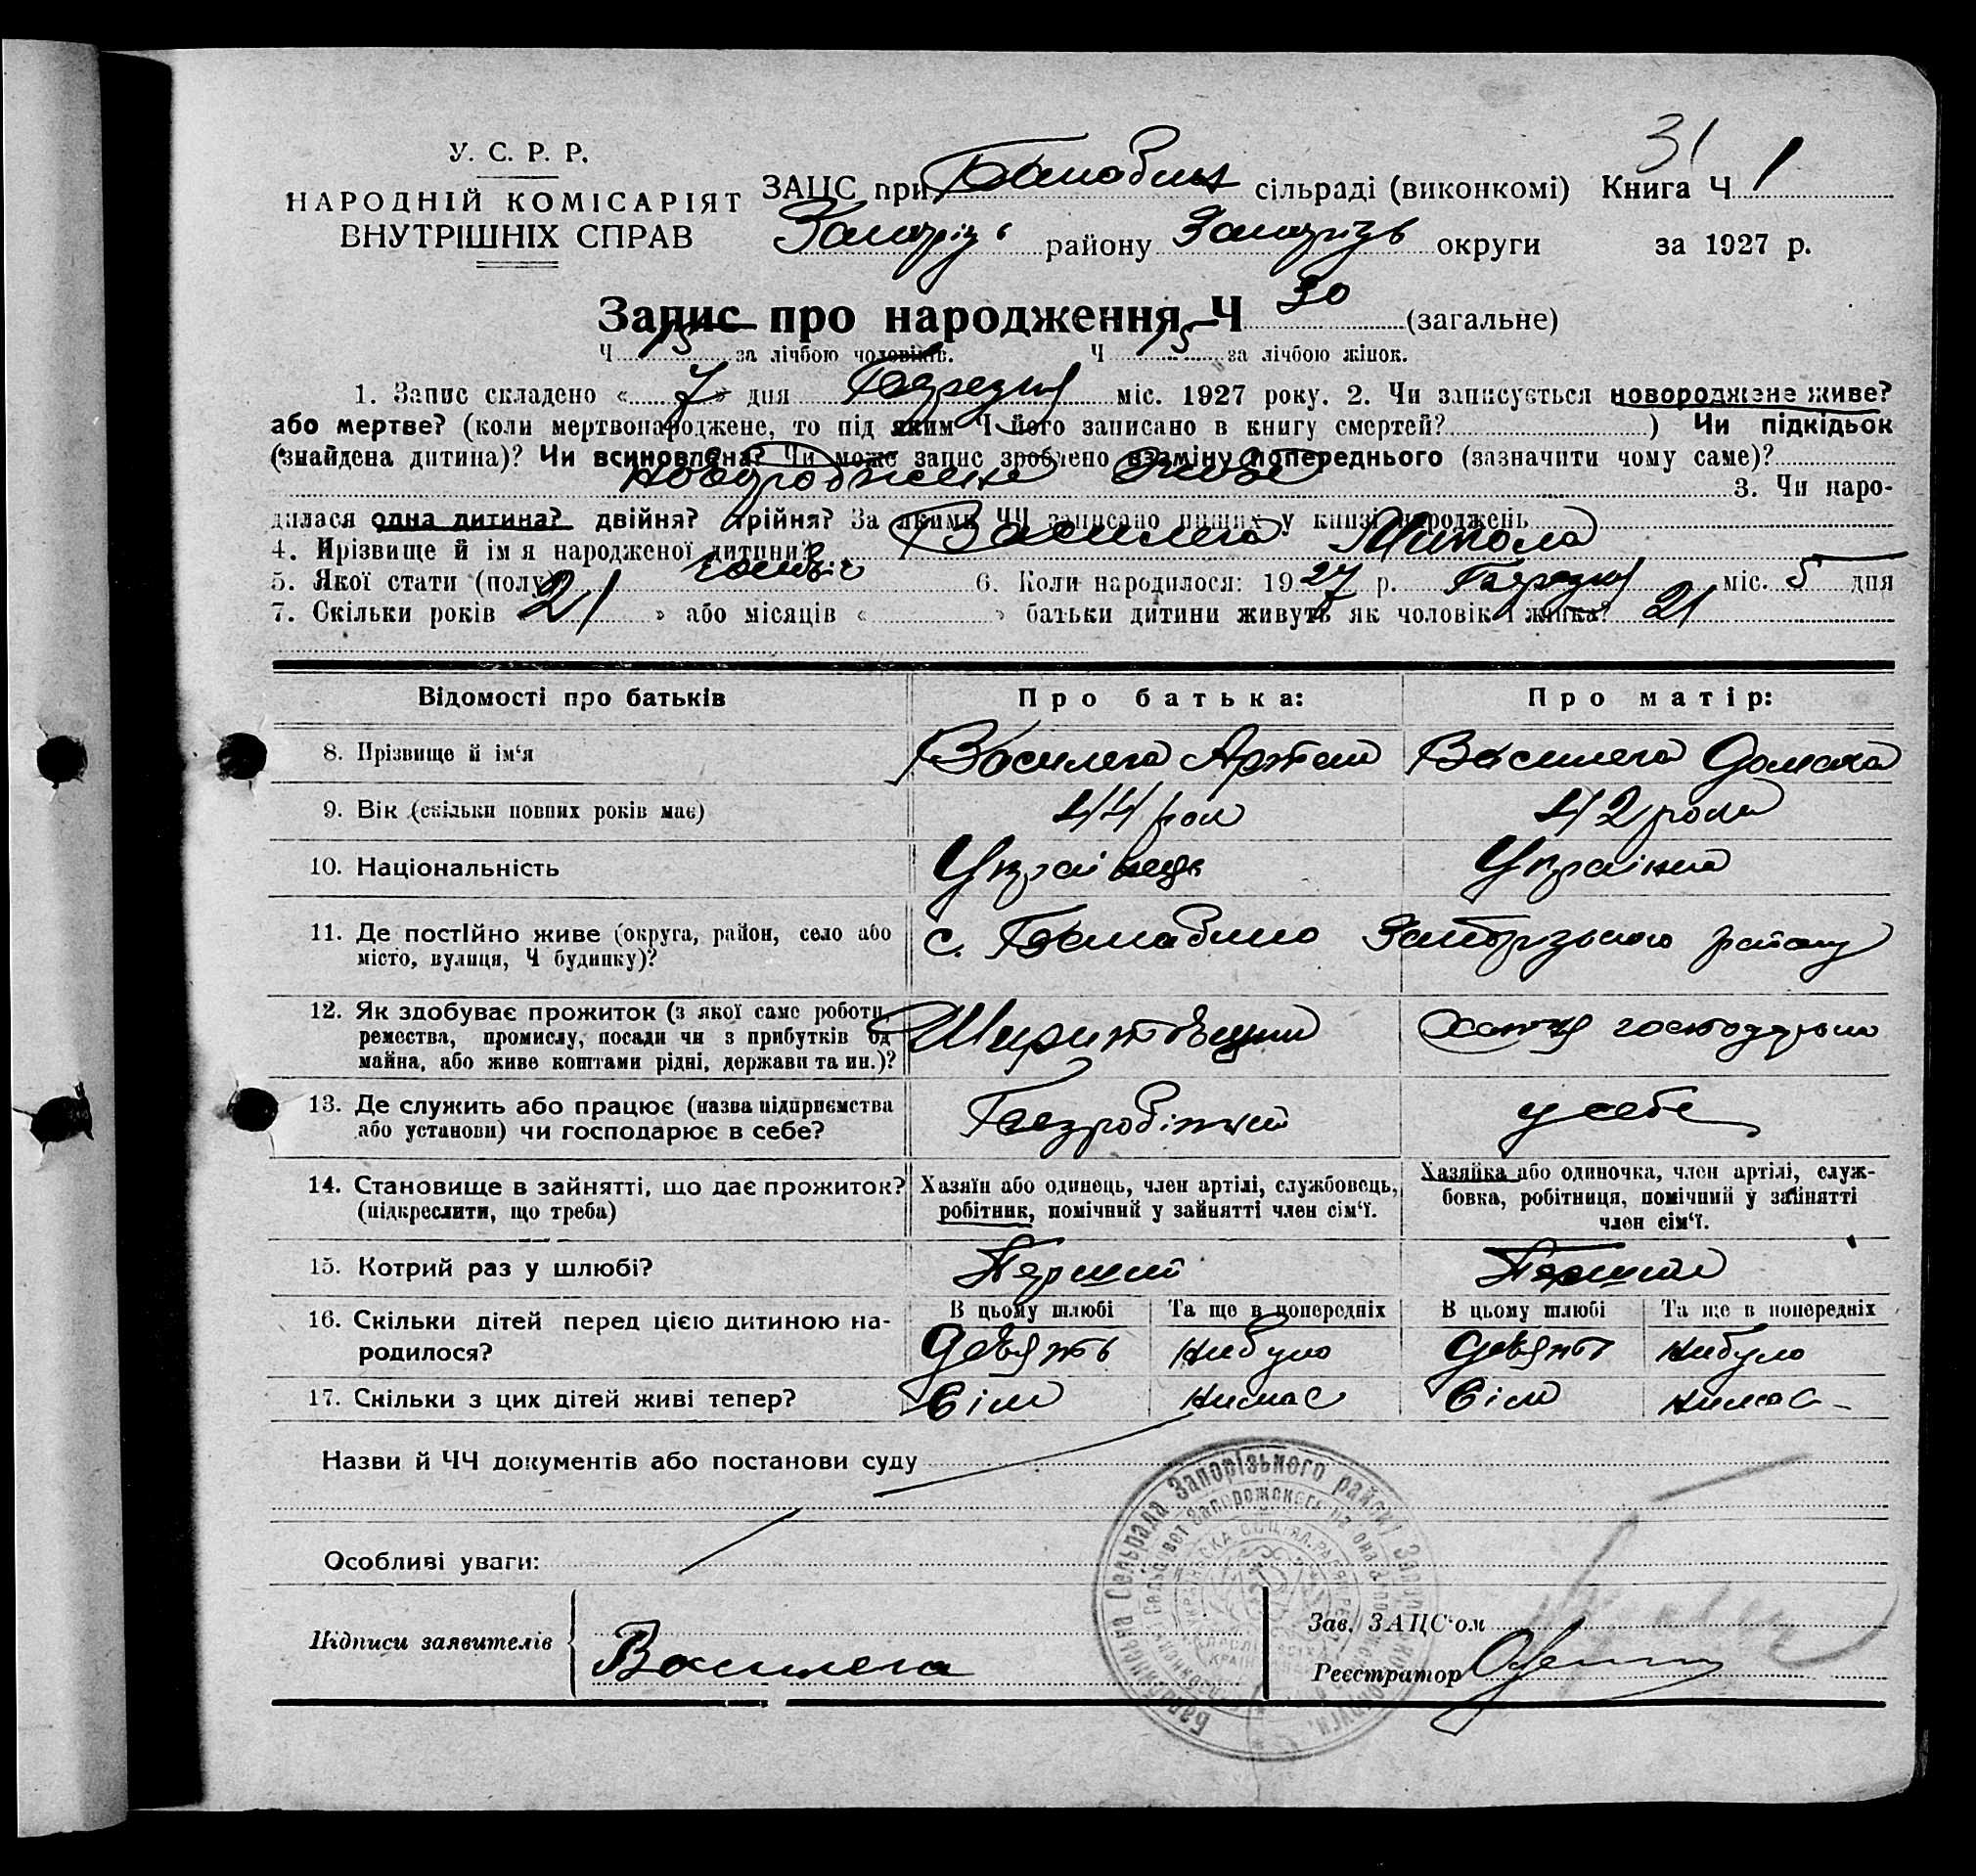 31
У. С. Р. Р.
НАРОДНІЙ КОМІСАРІЯТ
ВНУТРІШНІХ СПРАВ
ЗАЦС при сільраді (виконкомі) Книга Ч 1
району округи за 1927 р.
Запис про народження Ч 30 (загальне)
Ч 15 за лічбою чоловіків. Ч 15 за лічбою жінок.
1. Запис складено « 7 » дня Березня міс. 1927 року. 2. Чи записується новороджене живе?
або мертве? (коли мертвонароджене, то під яким Ч його записано в книгу смертей? ) Чи підкідьок
(знайдена дитина)? Чи всиновлена? Чи може запис зроблено взаміну попереднього (зазначити чому саме)?
новороджене живе 3. Чи наро-
дилася одна дитина? двійня? трійня? За якими ЧЧ записано инших у книзі народжень
4. Прізвище й ім'я народженої дитини? Василега Микола
5. Якої стати (полу) 6. Коли народилося: 1927 р. Березня міс. 5 дня
7. Скільки років « 21 » або місяців « » батьки дитини живуть як чоловік і жінка? 21
Відомості про батьків Про батька: Про матір:
8. Прізвище й ім'я Василега Артем Василега Домаха
9. Вік (скільки повних років має) 44 рок 42 роки
10. Національність Українець Українка
11. Де постійно живе (округа, район, село або
місто, вулиця, Ч будинку)? с. Запорізького району
12. Як здобуває прожиток (з якої саме роботи,
ремества, промислу, посади чи з прибутків од
майна, або живе коштами рідні, держави та ин.)?
13. Де служить або працює (назва підприємства
або установи) чи господарює в себе? Безробітний у себе
14. Становище в зайнятті, що дає прожиток?
(підкреслити, що треба)
Хазяїн або одинець, член артілі, службовець,
робітник, помічний у зайнятті член сім'ї.
Хазяйка або одиночка, член артілі, служ-
бовка, робітниця, помічний у зайнятті
член сім'ї.
15. Котрий раз у шлюбі? Перший Перший
16. Скільки дітей перед цією дитиною на-
родилося?
В цьому шлюбі Та ще в попередніх В цьому шлюбі Та ще в попередніх
Девять небуло Девять небуло
17. Скільки з цих дітей живі тепер? Сім немає Сім немає
Назви й ЧЧ документів або постанови суду
Особливі уваги:
Підписи заявителів Василега
Зав. ЗАЦС'ом
Реєстратор
Сельрада Запорізького району Запорізької округи